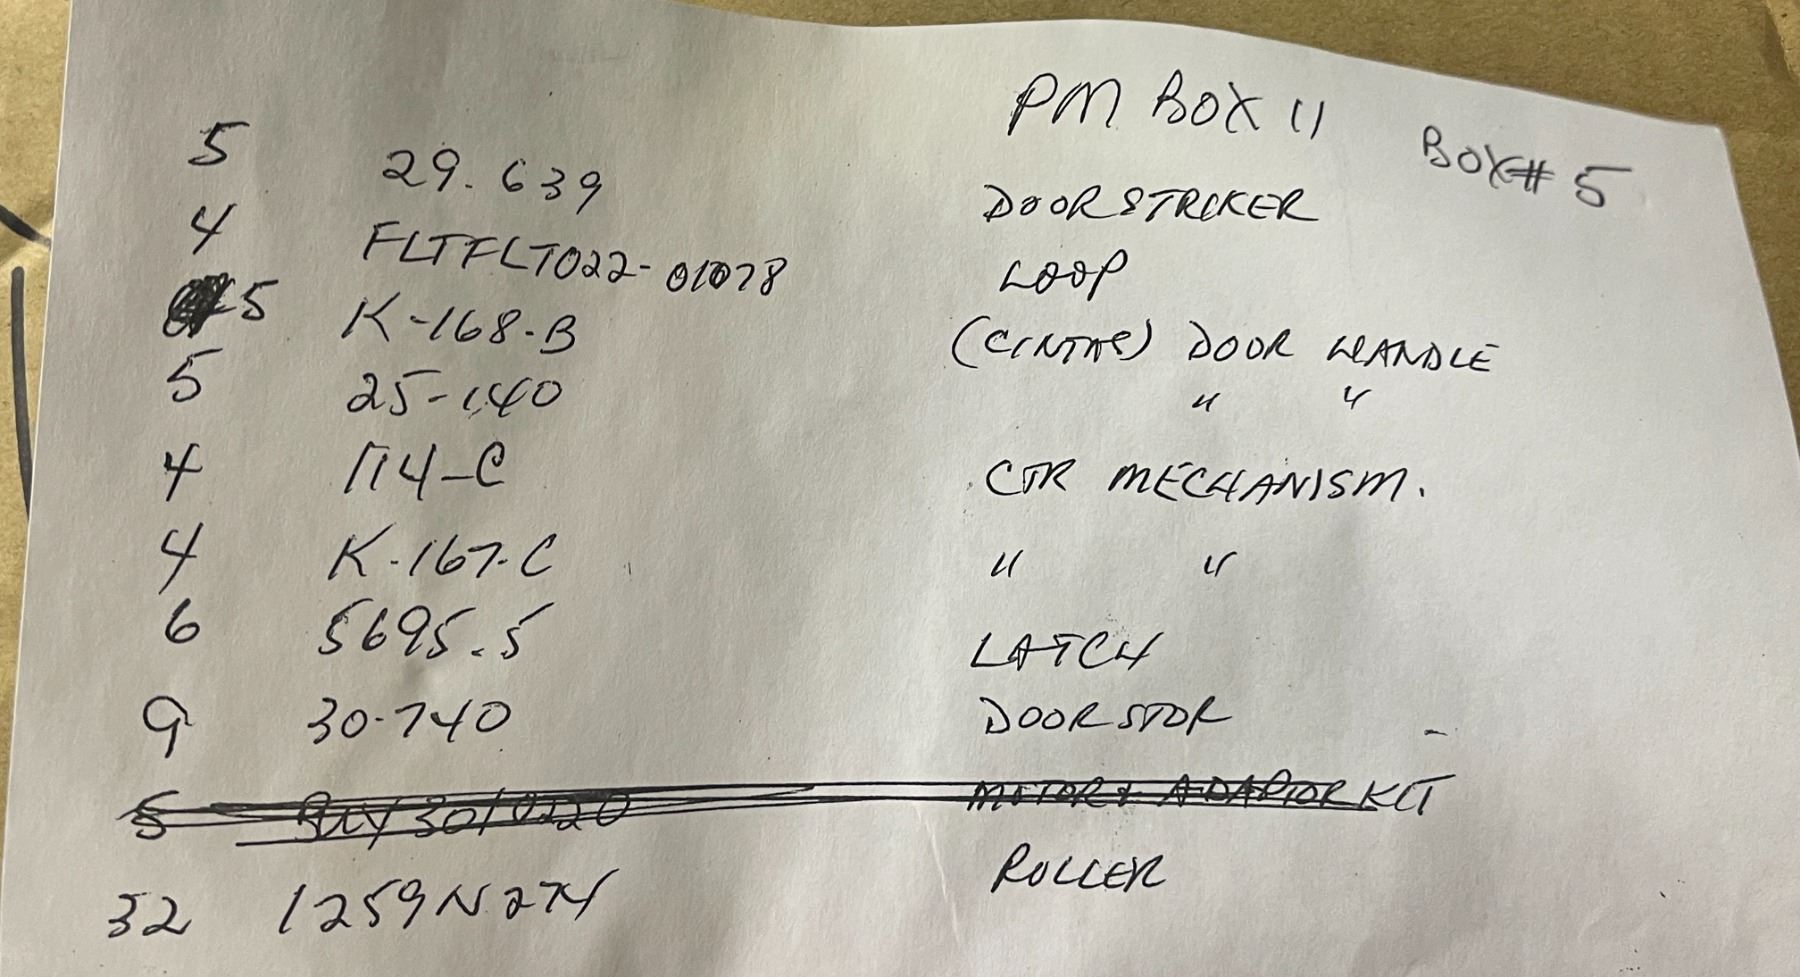 PM BOX 11
BOX# 5
5 29.639 DOOR STRIKER
4 FLTFLT022-01078 LOOP
5 K-168-B (CINTAS) DOOR HANDLE
5 25-140 " "
4 114-C CTR MECHANISM.
4 K-167-C " "
6 5695.5 LATCH
9 30-740 DOOR STOP
5 3010220 MOTOR & ADAPTOR KIT
32 1259N27 ROLLER